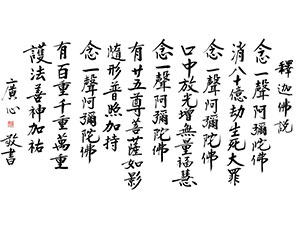 釋迦佛說
念一聲阿彌陀佛
消八十億劫生死大罪
念一聲阿彌陀佛
口中放光增無量福慧
念一聲阿彌陀佛
有廿五尊菩薩如影
隨形普照加持
念一聲阿彌陀佛
有百重千重萬重
護法善神加祐
廣心 敬書